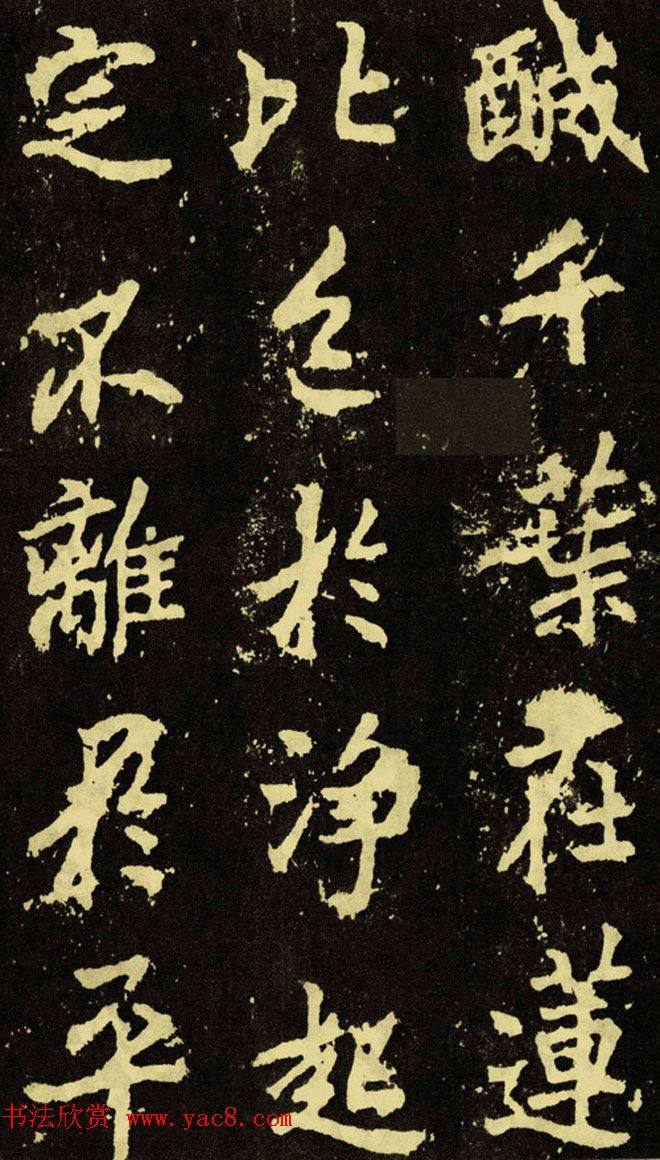 醎千葉在蓮
比色於淨起
定不離於平
书法欣赏 www.yac8.com